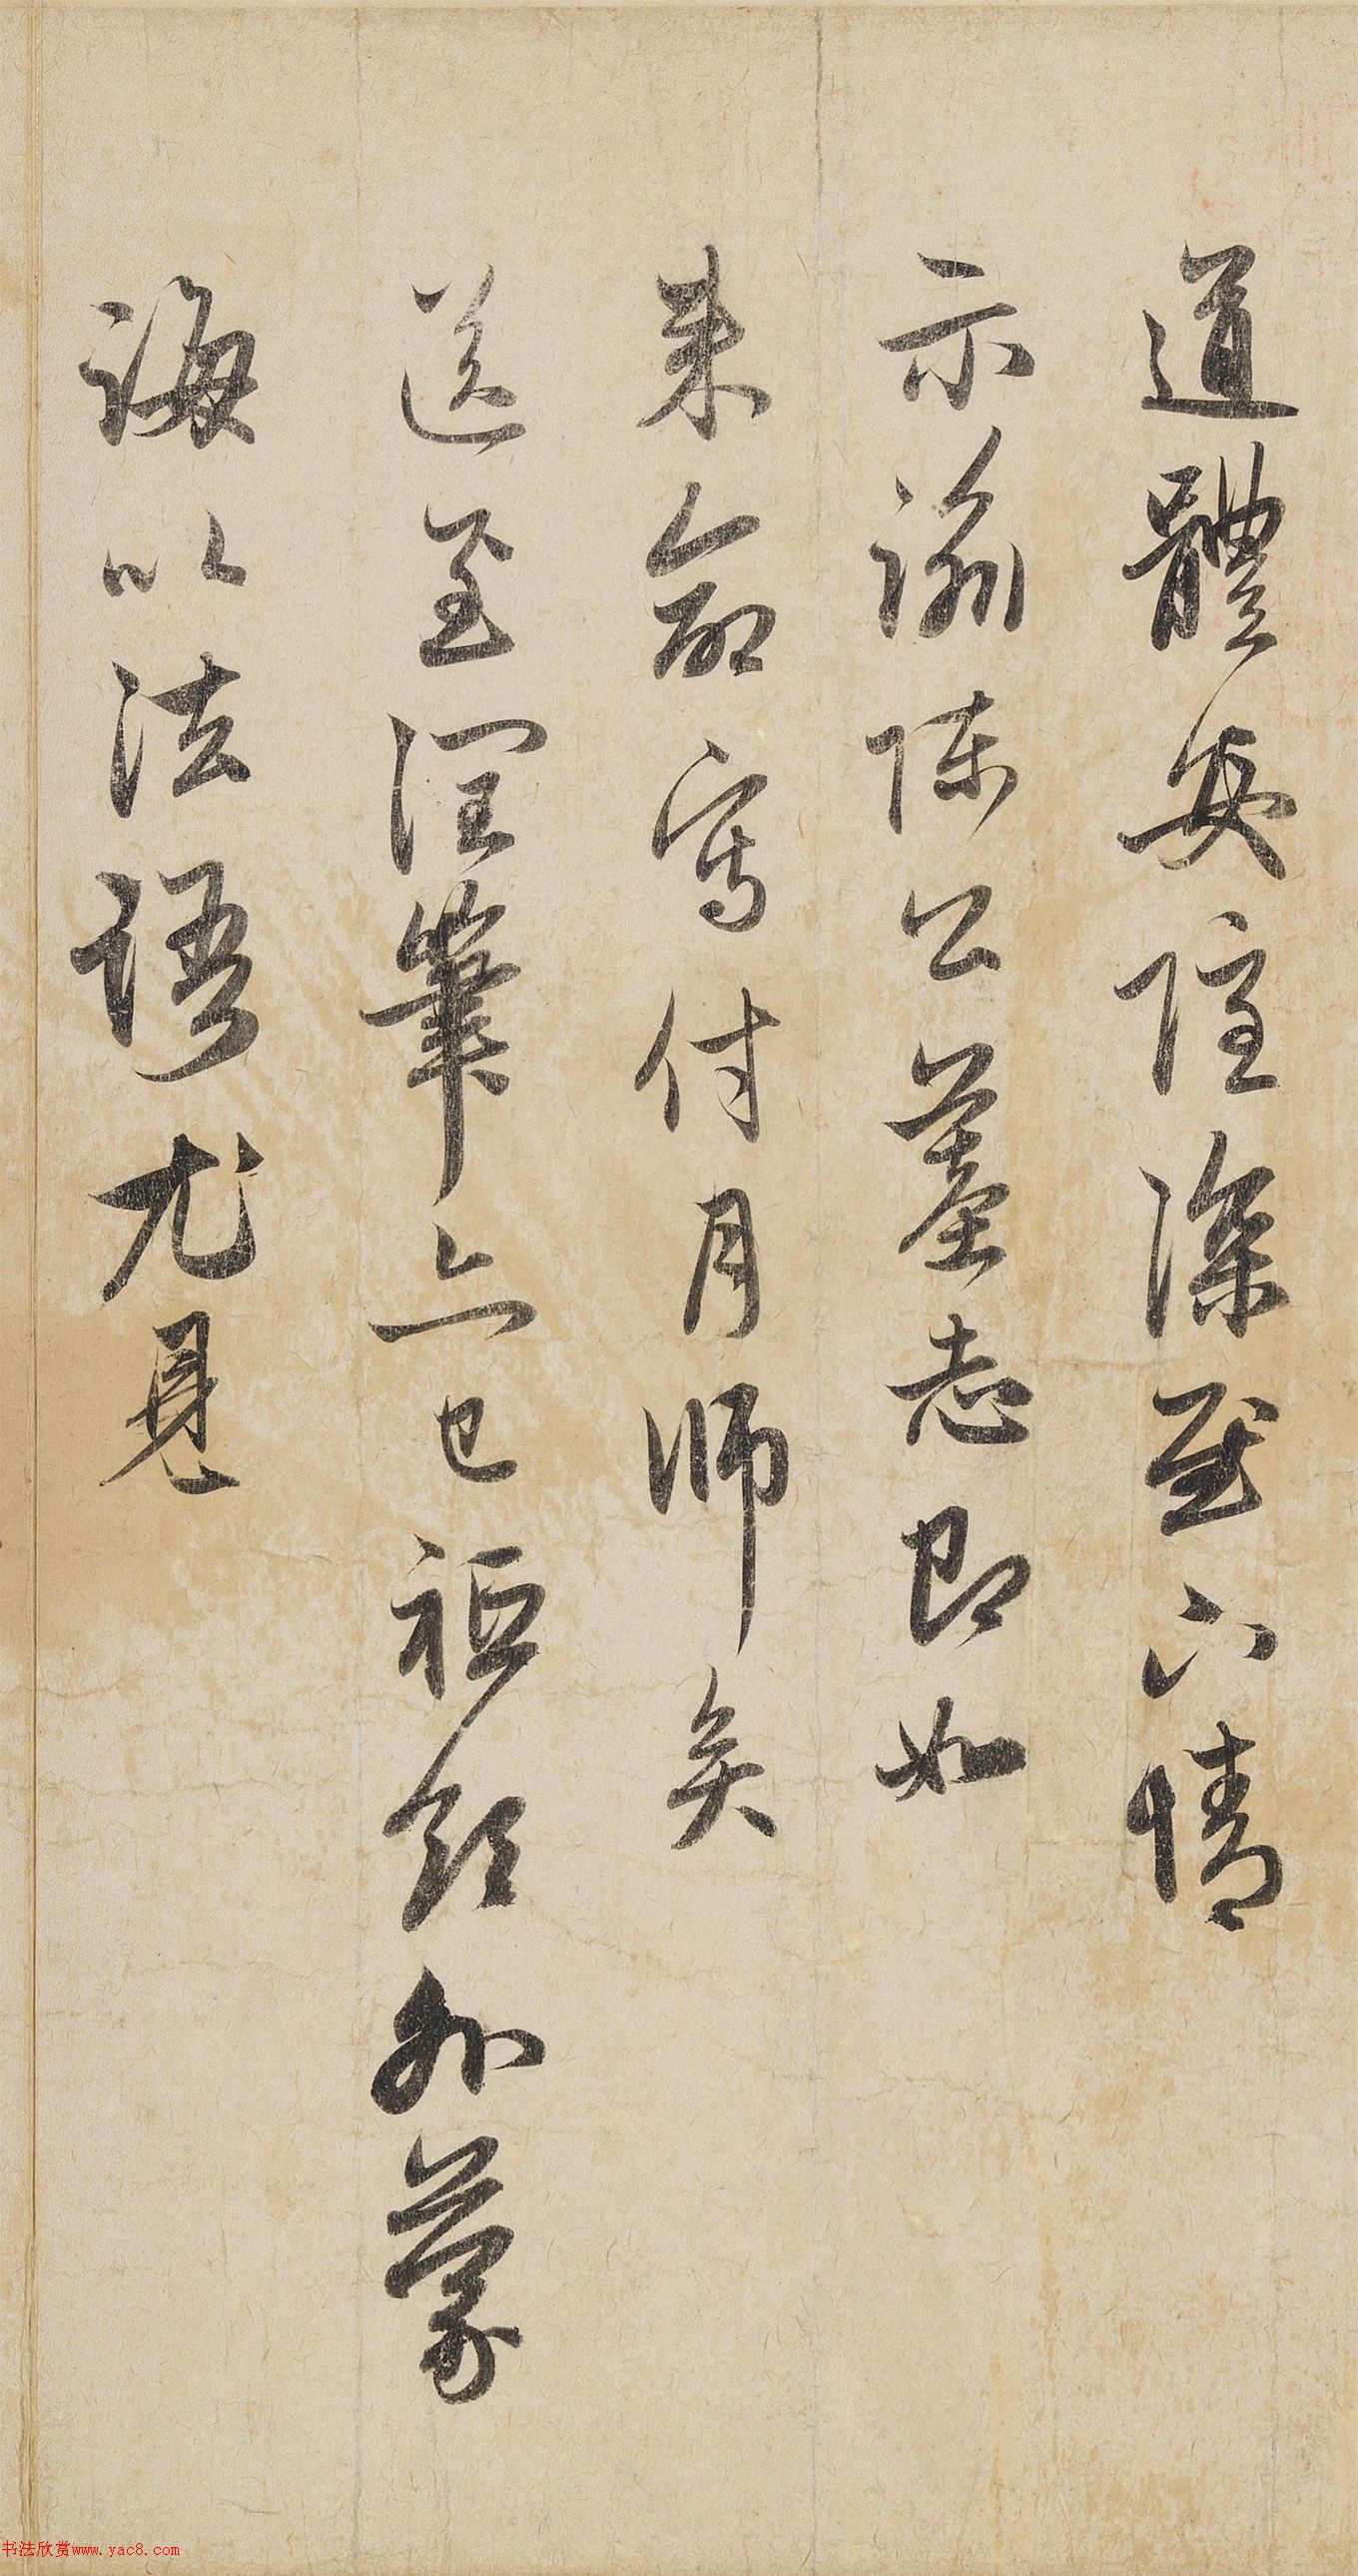 道體安隱深慰下情
示諭陳公墓志即如
來命寫付月師矣
送至潤筆亦已祗領外蒙
誨以法語尤見
书法欣赏www.yac8.com